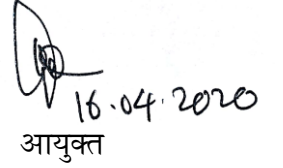 16.04.2020
आयुक्त